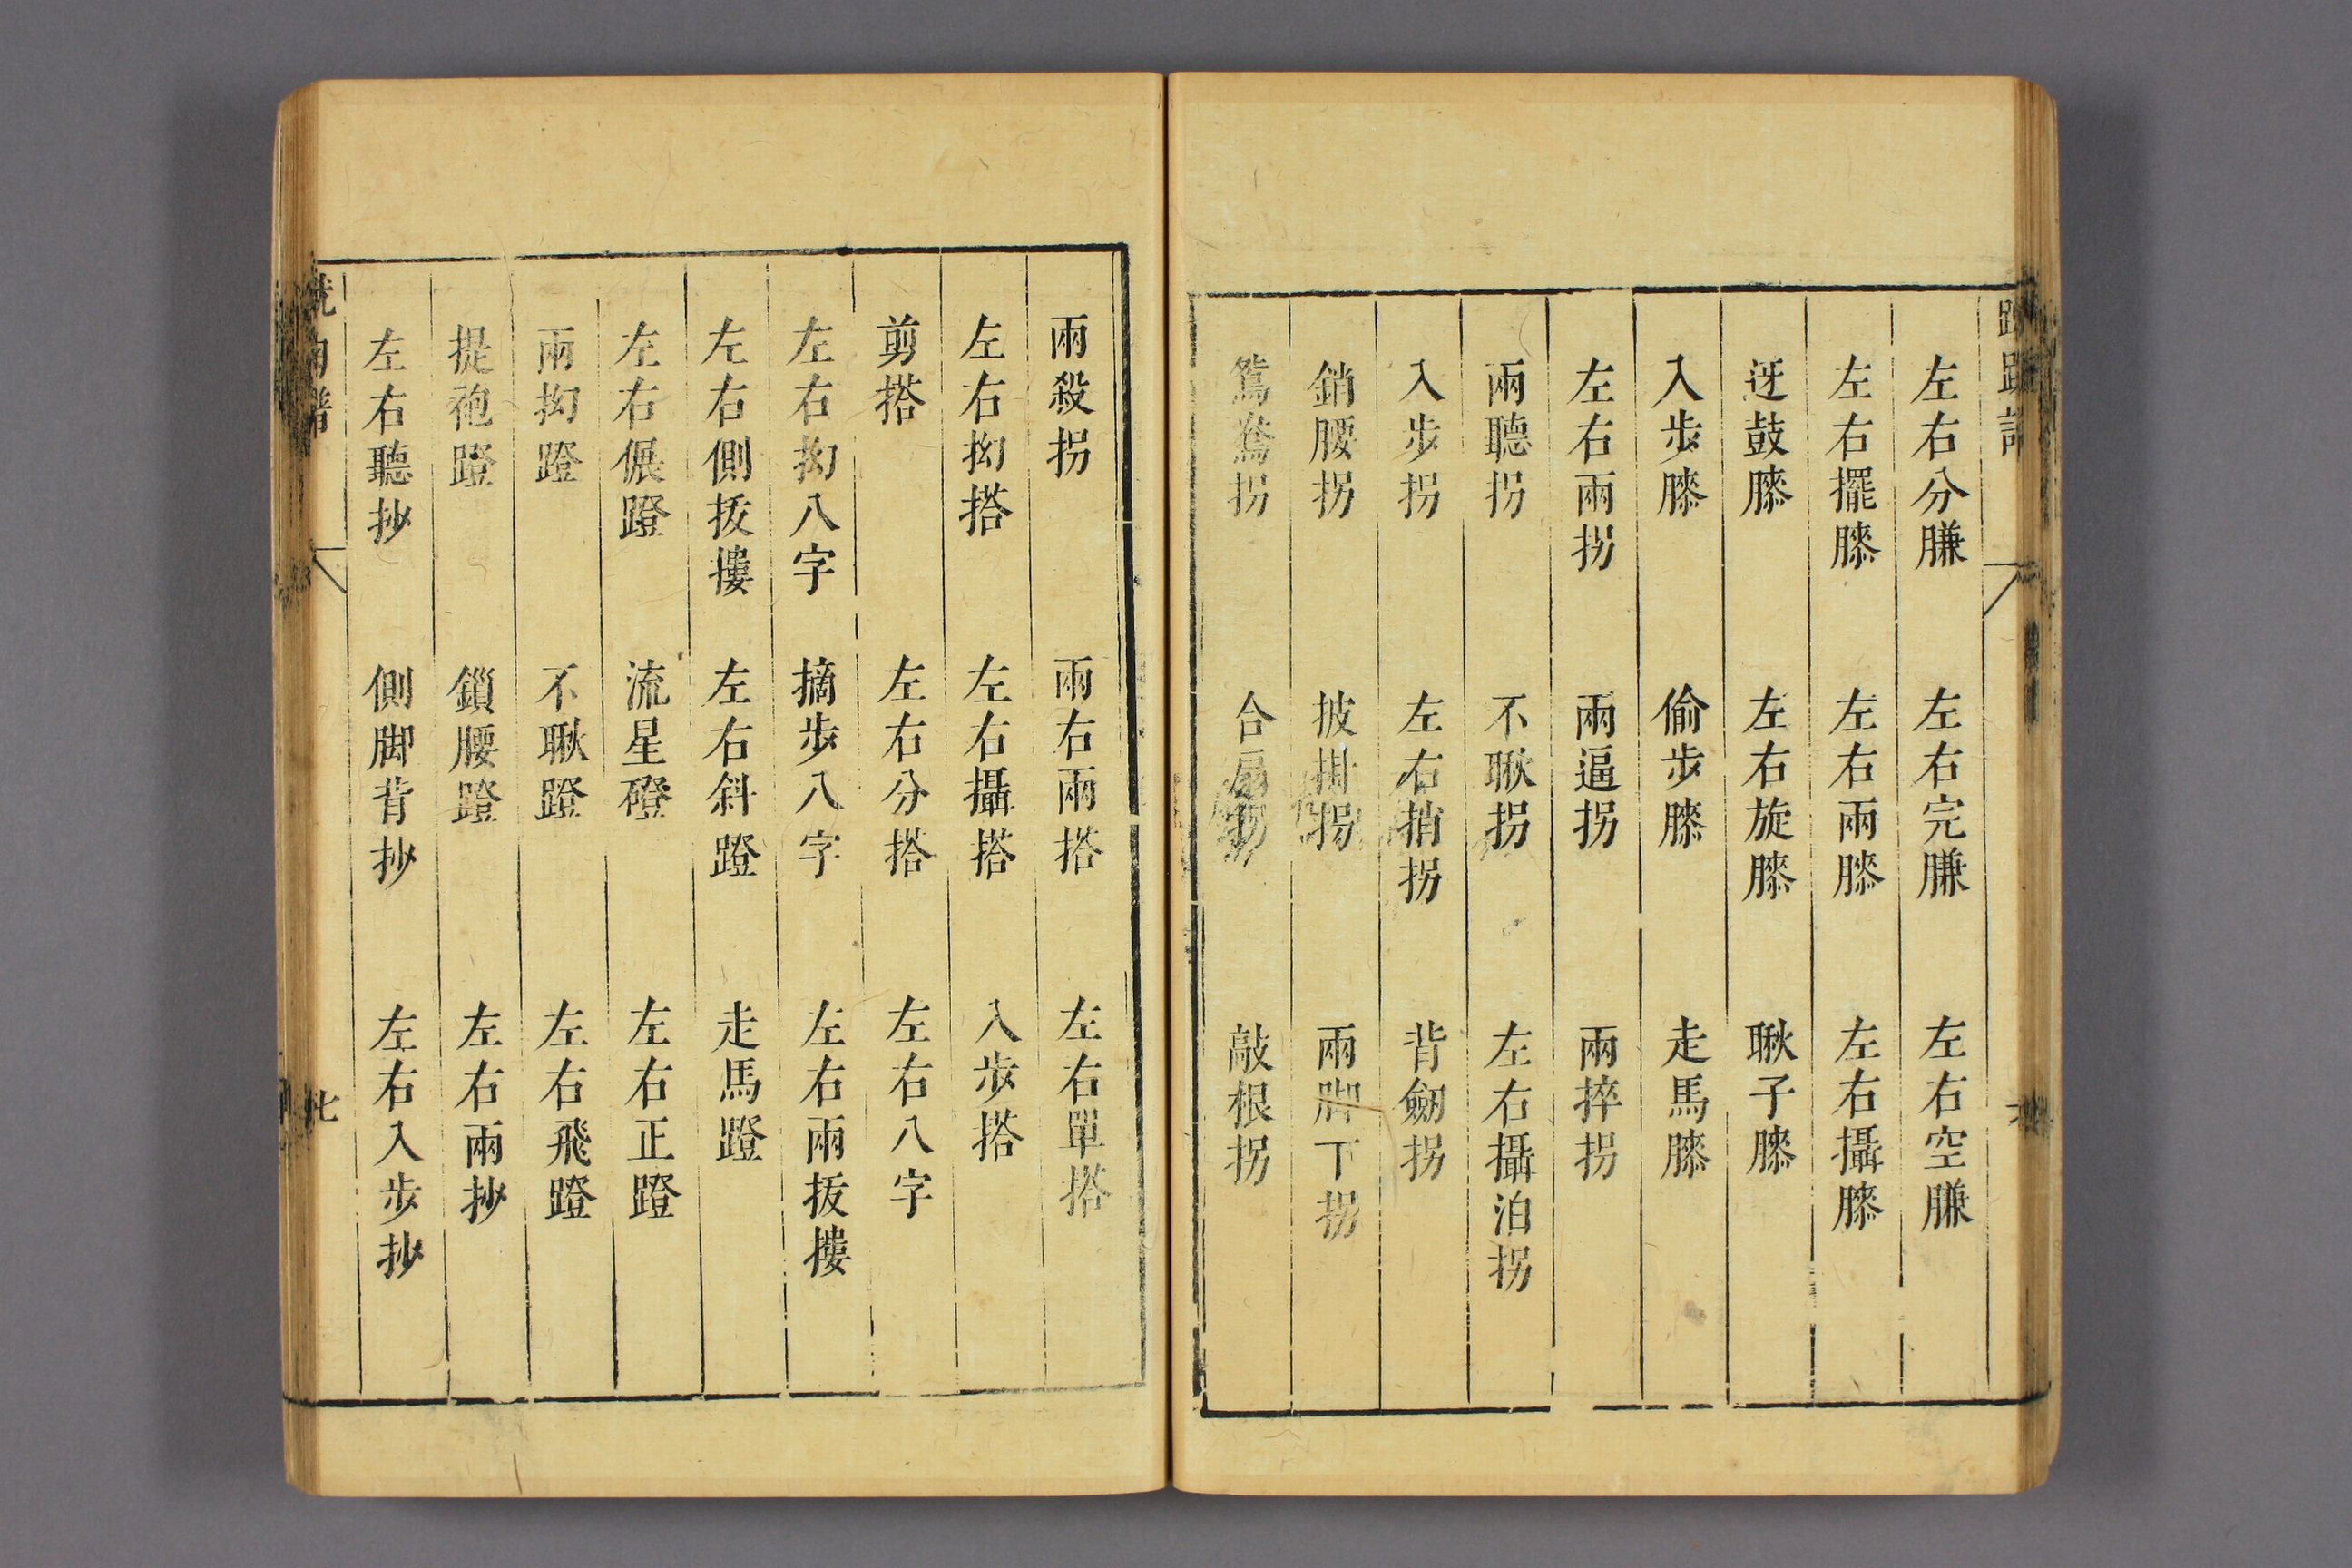 左右分臁　左右完臁　左右空臁
左右擺膝　左右兩膝　左右攝膝
迓鼓膝　左右旋膝　聥子膝
入步膝　偷步膝　走馬膝
左右兩拐　兩逼拐　兩捽拐
兩聽拐　不瞅拐　左右攝泊拐
入步拐　左右捎拐　背劒拐
銷腰拐　披掛拐　兩脚下拐
鴛鴦拐　合扇拐　敲根拐
兩殺拐　兩右兩搭　左右單搭
左右抝搭　左右攝搭　入步搭
剪搭　左右分搭　左右八字
左右抝八字　摘步八字　左右兩扳摟
左右側扳摟　左右斜蹬　走馬蹬
左右偃蹬　流星磴　左右正蹬
兩抝蹬　不瞅蹬　左右飛蹬
提袍蹬　鎖腰蹬　左右兩抄
左右聽抄　側脚背抄　左右入步抄
七